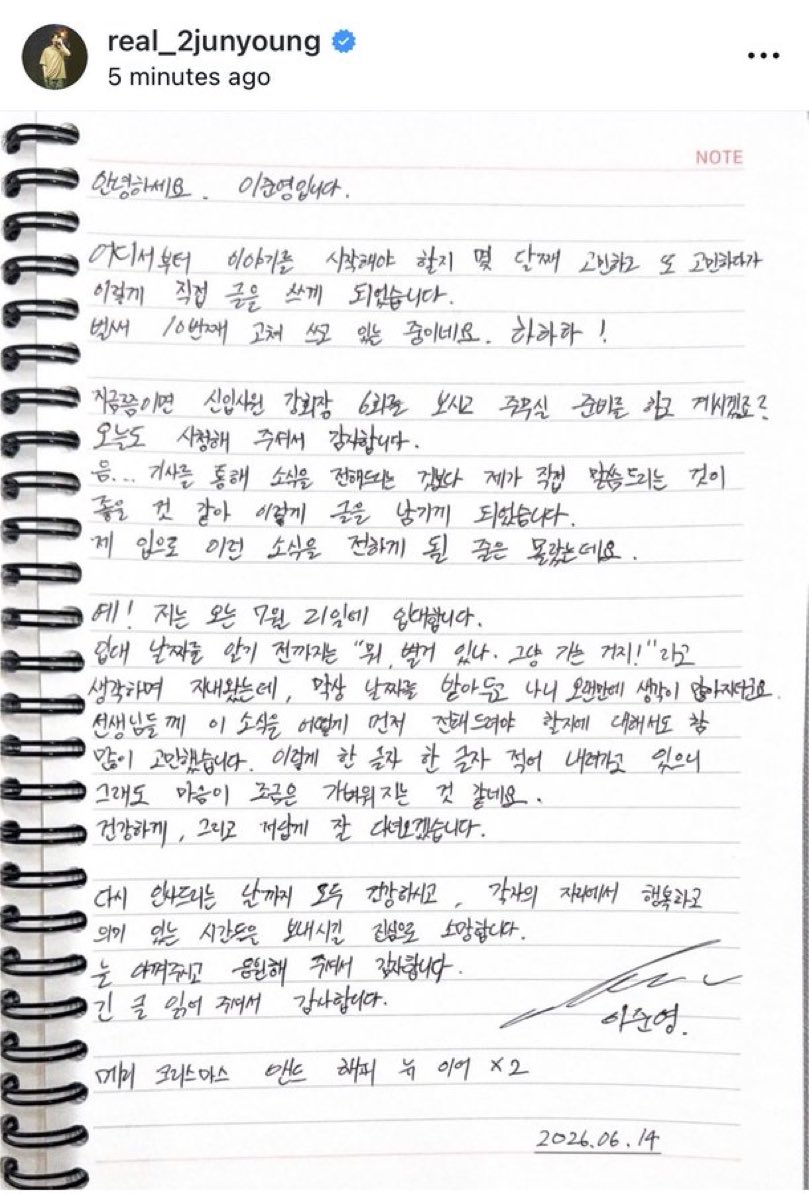 real_2junyoung
5 minutes ago
NOTE
안녕하세요. 이준영입니다.
어디서부터 이야기를 시작해야 할지 몇 달째 고민하고 또 고민하다가
이렇게 직접 글을 쓰게 되었습니다.
벌써 10번째 고쳐 쓰고 있는 중이네요. 하하하!
지금쯤이면 신입사원 강회장 6회를 보시고 주무실 준비를 하고 계시겠죠?
오늘도 시청해 주셔서 감사합니다.
음... 기사를 통해 소식을 전해드리는 것보다 제가 직접 말씀드리는 것이
좋을 것 같아 이렇게 글을 남기게 되었습니다.
제 입으로 이런 소식을 전하게 될 줄은 몰랐는데요.
예! 저는 오는 7월 21일에 입대합니다.
입대 날짜를 알기 전까지는 "뭐, 별거 있나. 그냥 가는 거지!"라고
생각하며 지내왔는데, 막상 날짜를 받아두고 나니 오랜만에 생각이 많아지더군요.
선생님들께 이 소식을 어떻게 먼저 전해드려야 할지에 대해서도 참
많이 고민했습니다. 이렇게 한 글자 한 글자 적어 내려가고 있으니
그래도 마음이 조금은 가벼워지는 것 같네요.
건강하게, 그리고 저답게 잘 다녀오겠습니다.
다시 인사드리는 날까지 모두 건강하시고, 각자의 자리에서 행복하고
의미 있는 시간들을 보내시길 진심으로 소망합니다.
늘 아껴주시고 응원해 주셔서 감사합니다.
긴 글 읽어 주셔서 감사합니다.
이준영.
메리 크리스마스 앤드 해피 뉴 이어 x2
2026.06.14